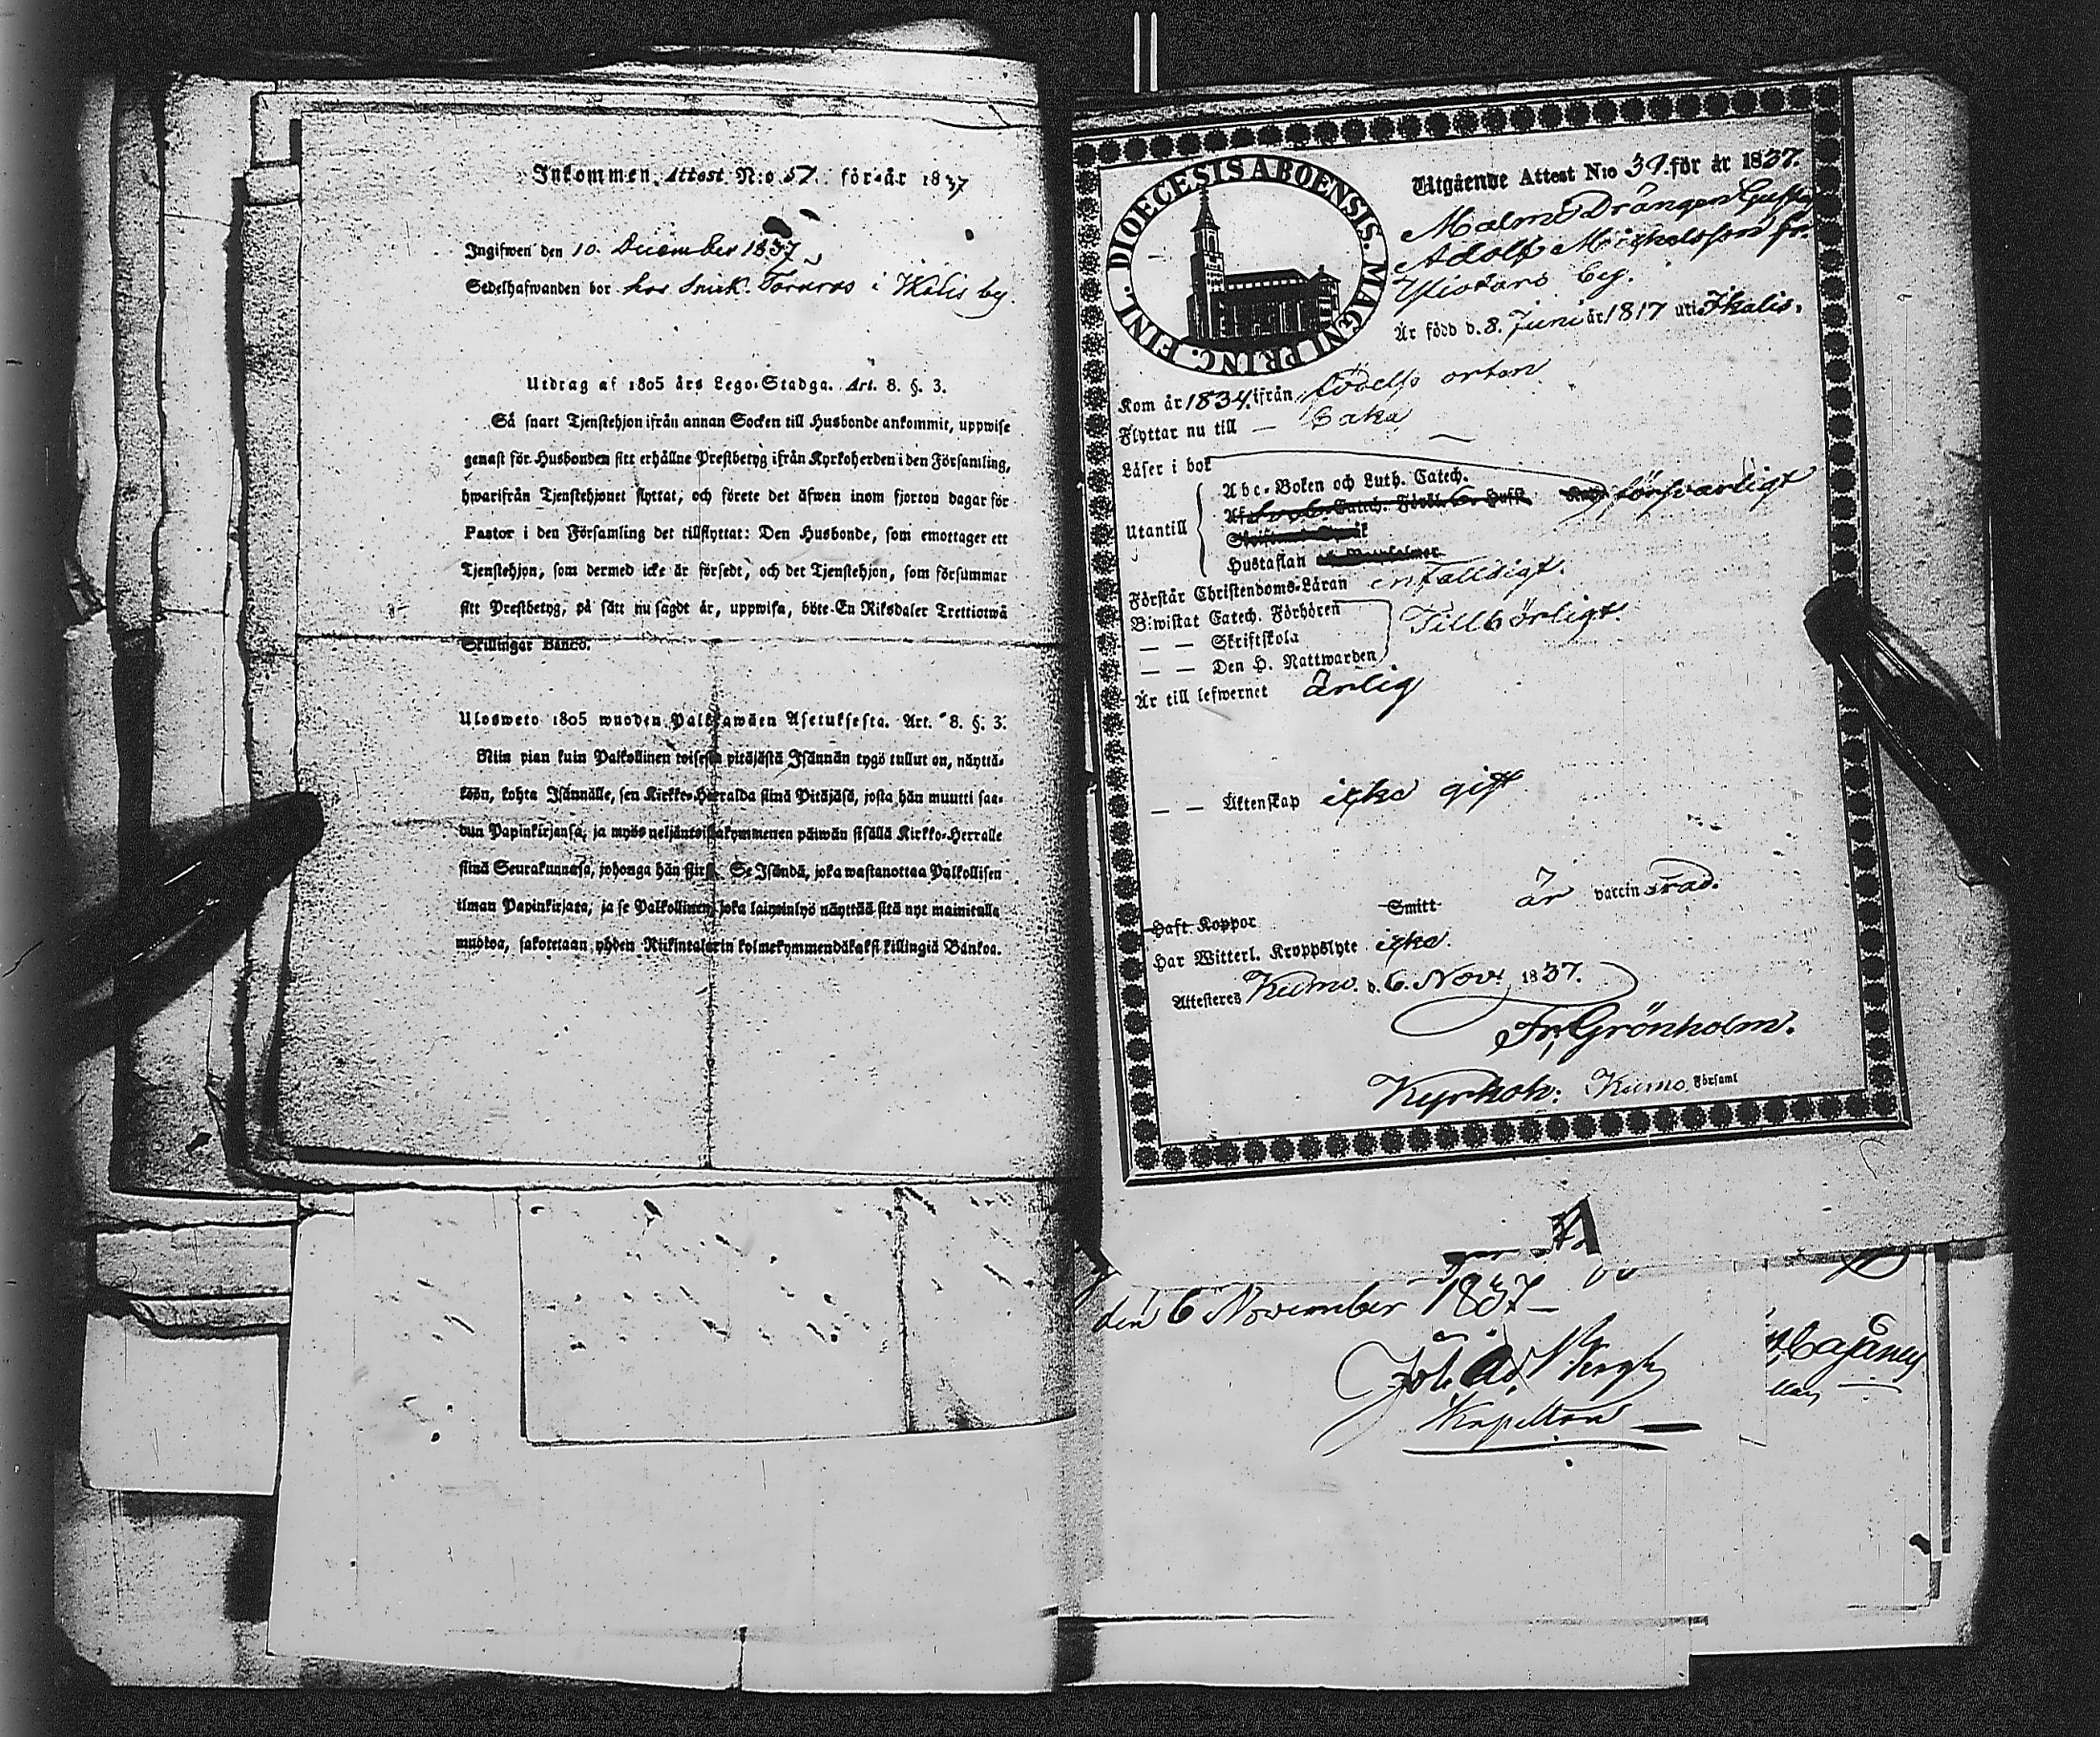 Inkommen Attest N:o 57. för år 1837
Ingifwen den 10. December 1837
Sedelhafwanden bor hos Snick. Tornros i Ikalis by.
Utdrag af 1805 års Lego-Stadga. Art. 8. §. 3.
Så snart Tjenstehjon ifrån annan Socken till Husbonde ankommit, uppwise
genast för Husbonden sitt erhållne Prestbetyg ifrån Kyrkoherden i den Församling,
hwarifrån Tjenstehjonet flyttat, och förete det äfwen inom fjorton dagar för
Pastor i den Församling det tillflyttat: Den Husbonde, som emottager ett
Tjenstehjon, som dermed icke är försedt, och det Tjenstehjon, som försummar
sitt Prestbetyg, på sätt nu sagdt är, uppwisa, böte En Riksdaler Trettiotwå
Skillingar Banco.
Ulosweto 1805 wuoden Palkkawäen Asetuksesta. Art. 8. §. 3.
Niin pian kuin Palkollinen toisesta pitäjästä Isännän tygö tullut on, näyttä-
köön, kohta Isännälle, sen Kirkko-Herralda siinä Pitäjäsä, josta hän muutti saa-
dun Papinkirjansa, ja myös neljäntoistakymmenen päiwän sisällä Kirkko-Herralle
siinä Seurakunnasa, johonga hän siirsi. Se Isändä, joka wastanottaa Palkollisen
ilman Papinkirjata, ja se Palkollinen, joka laiminlyö näyttää sitä nyt mainitulla
muotoa, sakotetaan yhden Riikintalerin kolmekymmendäkaksi killingiä Bankoa.
DIOECESIS ABOENSIS. MAGNI PRINC. FINL.
Utgående Attest N:o 34. för år 1837.
Malmö Drängen Gustaf
Adolf Michelsson fr.
Ylistaro by.
Är född d. 8. Juni år 1817 uti Ikalis.
Kom år 1834. ifrån födelse orten
Flyttar nu till — Baka
Läser i bok
Utantill
Abc-Boken och Luth. Catech.
försvarligt
Hustaflan
Förstår Christendoms-Läran enfaldigt.
Biwistat Catech. Förhören
— — Skriftskola
Tillbörligt.
— — Den H. Nattwarden
Är till lefwernet ärlig
— — Äktenskap icke gift
Haft Koppor Smitt är vaccinerad.
Har Witterl. Kroppslyte icke.
Attesteres Kumo. d. 6. Nov. 1837.
Fr. Grönholm.
Kyrkoh: Kumo. Församl
den 6 November 1837
Joh. Ad. Bergh
Kapellan
Cajanus